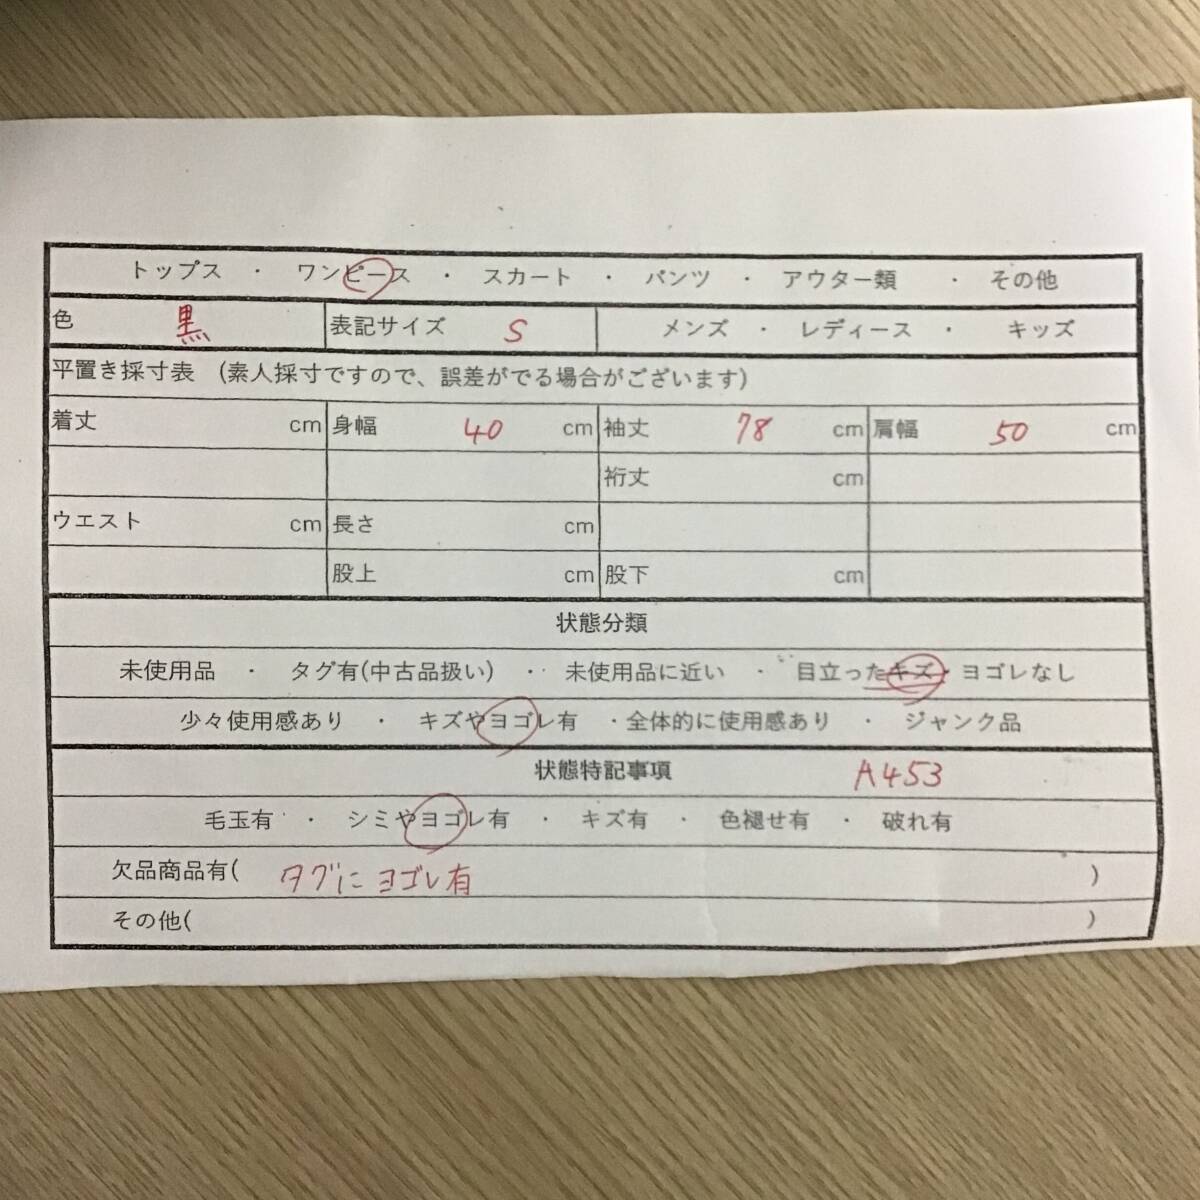 トップス ・ ワンピース ・ スカート ・ パンツ ・ アウター類 ・ その他
色 黒 表記サイズ S メンズ ・ レディース ・ キッズ
平置き採寸表 (素人採寸ですので、誤差がでる場合がございます)
着丈 cm 身幅 40 cm 袖丈 78 cm 肩幅 50 cm
裄丈 cm
ウエスト cm 長さ cm
股上 cm 股下 cm
状態分類
未使用品 ・ タグ有(中古品扱い) ・ 未使用品に近い ・ 目立ったキズ・ヨゴレなし
少々使用感あり ・ キズやヨゴレ有 ・全体的に使用感あり ・ ジャンク品
状態特記事項 A453
毛玉有 ・ シミやヨゴレ有 ・ キズ有 ・ 色褪せ有 ・ 破れ有
欠品商品有( タグに ヨゴレ有 )
その他( )